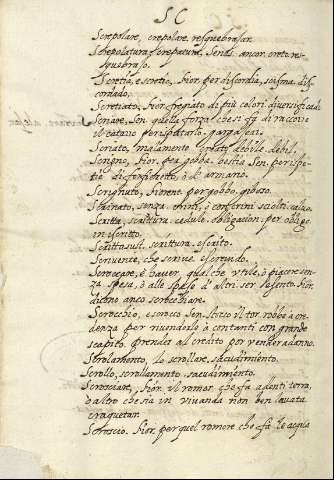 SC
Screpolare, crepolare, resquebrajar.
Screpolatura, crepatura, Senes. ancor cretto res-
quebrajo.
Scretia, e scretio, Fior. per discordia, scisma. di-
cordado.
Scretiato, Fior. fregiato di più colori diversificado
Scriare, Sen. quella forza che si fa di raccorre
il catarro per isputarlo. gargajear.
Scriato, malamente creato debile. debil.
Scrigno, Fior. gea. gobba. bestia Sen. per ispe-
tie di forzieretto, ò d'armario.
Scrignuto, Fiorent. per gobbo. giboso.
Scrinato, senza crini, ò con i crini sciolti. calvo.
Scritta, scrittura. cedula. obligacion. per obligo
in iscritto.
Scritto sust. scrittura. escrito.
Scrivence, che scrive. escrivendo.
Scroccare, è haver qualche utile, ò piacere sen-
za spesa, ò alle spese d'altri. ser
dicono anco scrocchiare.
Scrocchio, e scrocco Sen. scrocco il tor robbe a cre-
denza per rivenderle à contanti con grande
scapito. prender al credito por vender a danno.
Scrolamento, lo scrollare, sacudimiento.
Scrollo, scrollamento. sacudimiento.
Scrosciare, Fior. il romor che fa a denti terra,
ò altro che sia in vivanda non ben lavata
craquetar.
Scroscio. Fior. per quel romore che fà le acqua